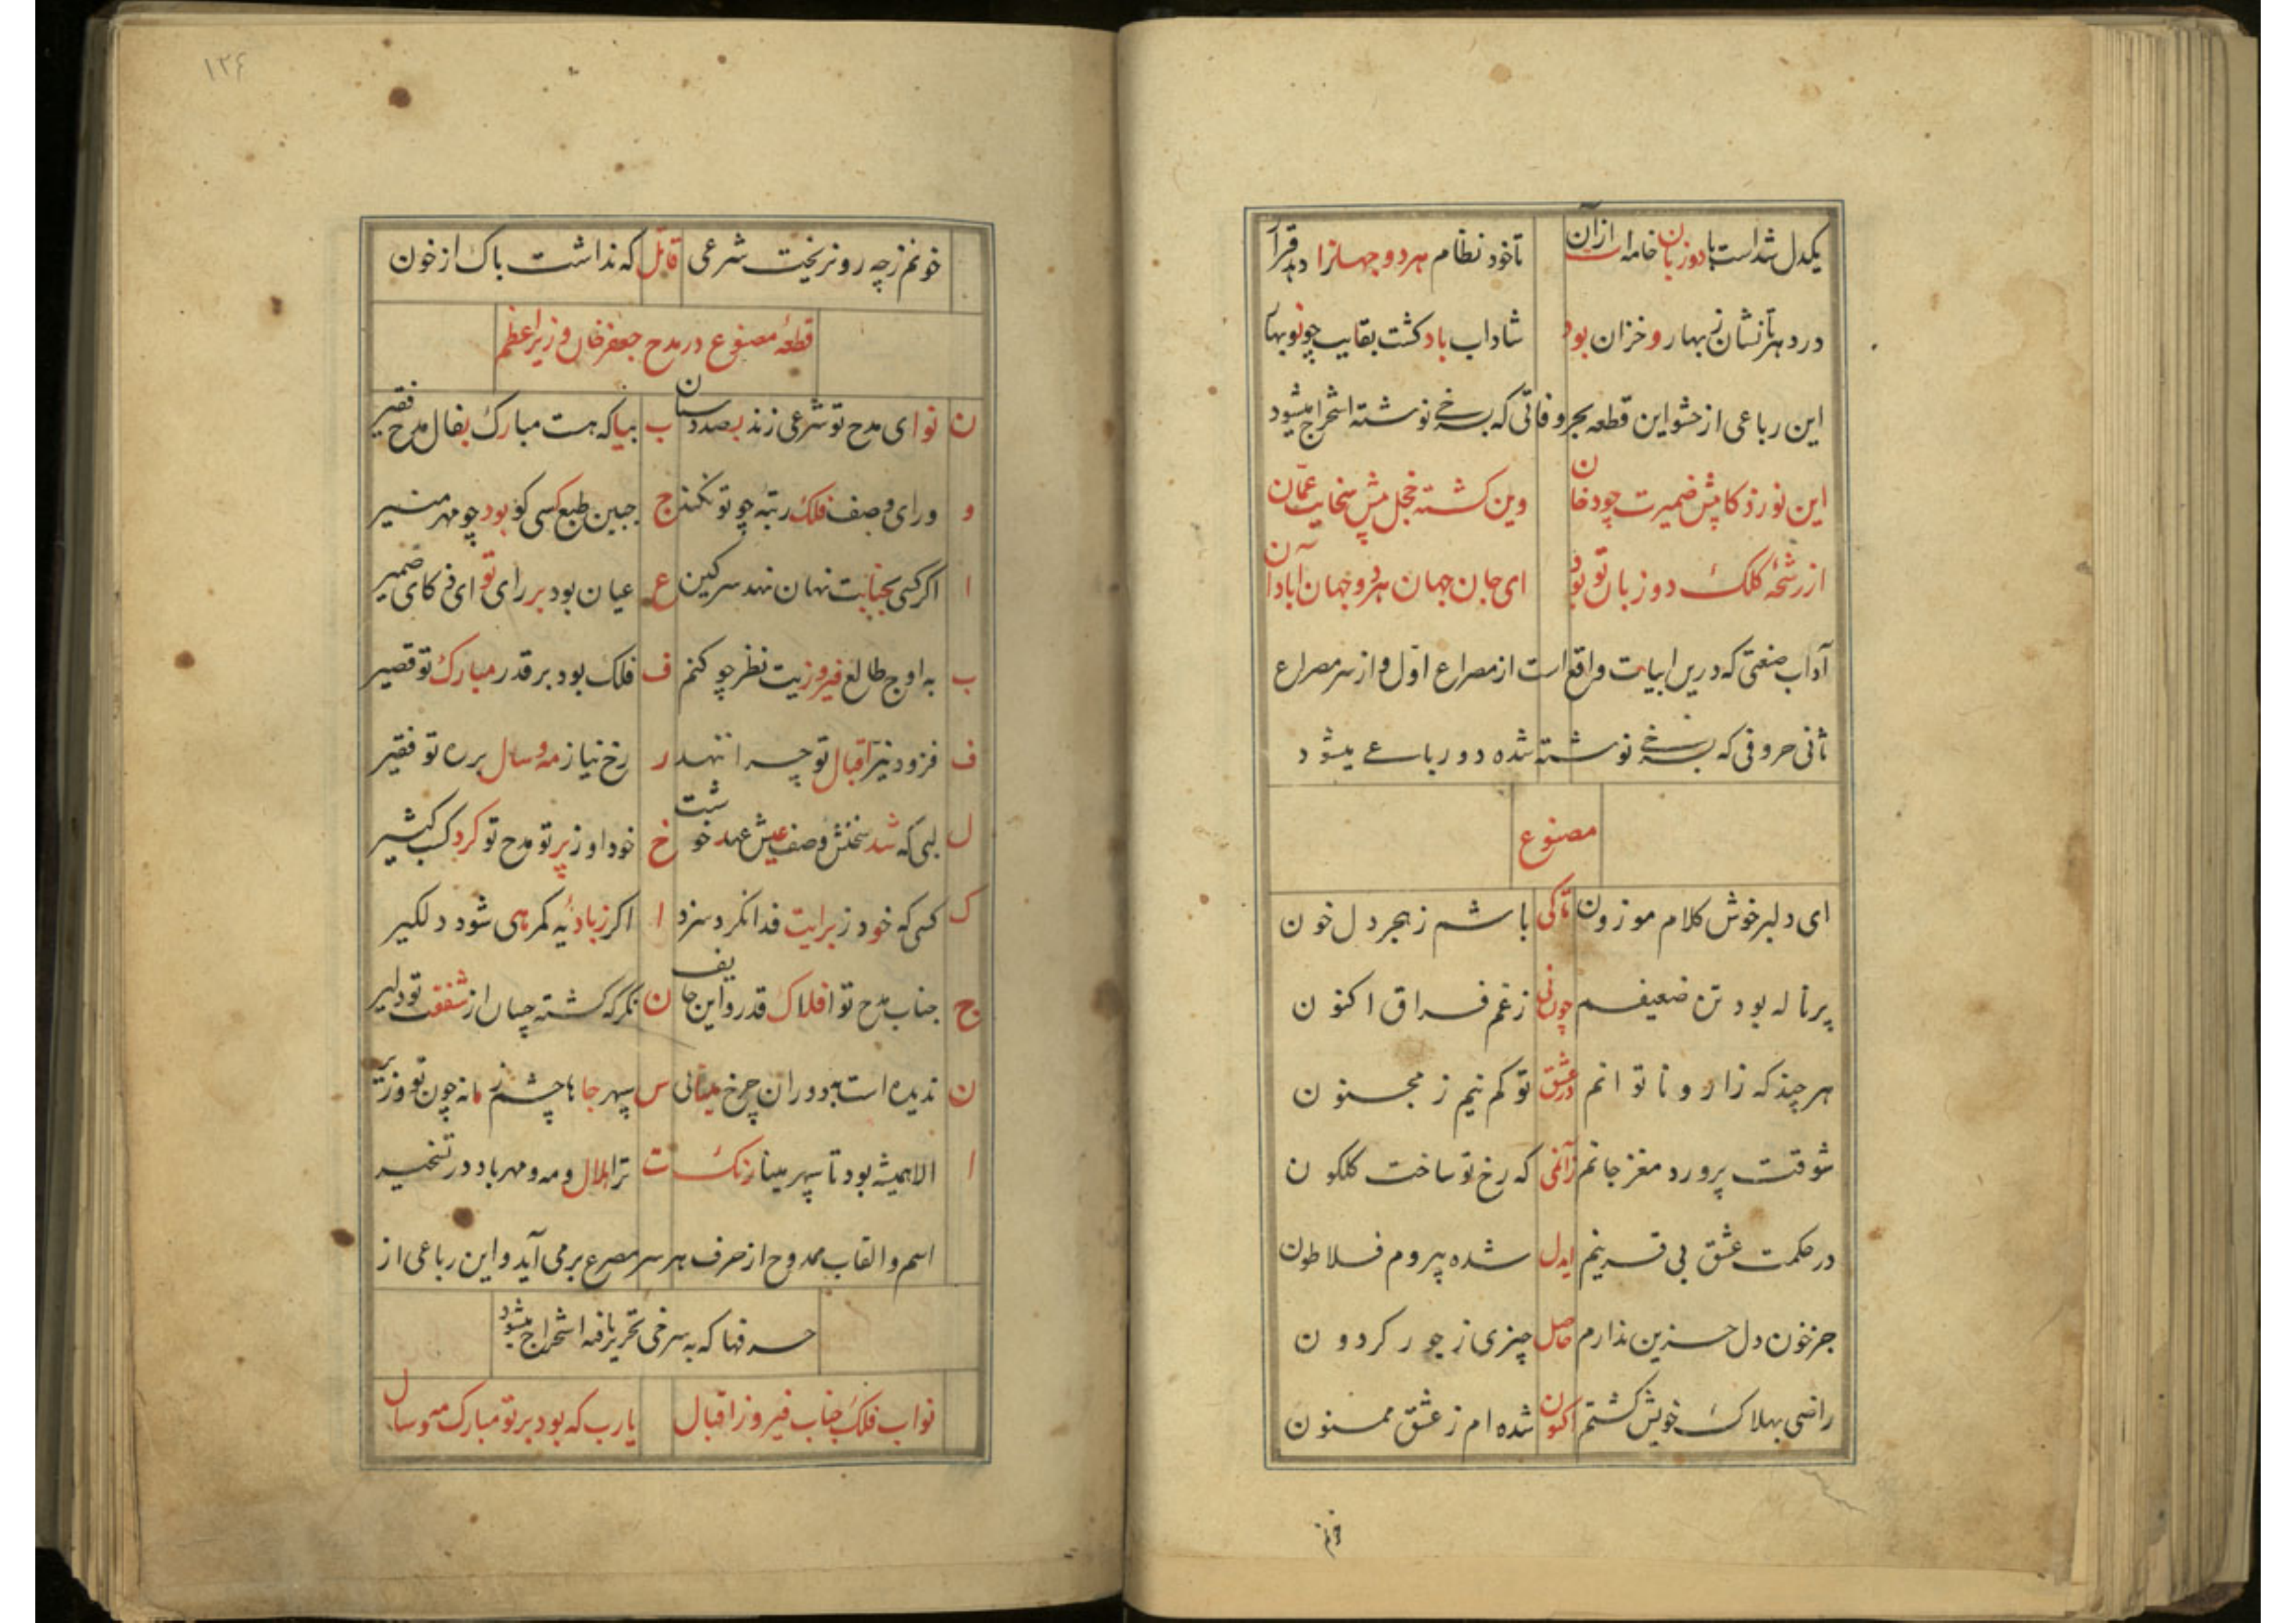 یکدل شد است با دو زبان خامه‌ات ازان تا خود نظام هر دو جهانرا دهد قرار
در دهر تا نشان ز بهار و خزان بود شاداب باد کشت بقایت چو نوبهار
این رباعی از حشو این قطعه بحروفاتی که بسرخی نوشته استخراج میشود
این نور ذکا پیش ضمیرت چو دخان وین کشته خجل پیش سخایت عمّان
از رشحهٔ کلک دو زبان تو بود ای جان جهان هر دو جهان آبادان
آداب صنعتی که درین ابیات واقع است از مصراع اوّل و از سر مصراع
ثانی حروفی که بسرخی نوشته شده دو رباعی میشود
مصنوع
ای دلبر خوش کلام موزون تا کی باشم ز هجر دل خون
پر ناله بود تن ضعیفم چون نی ز غم فراق اکنون
هر چند که زار و ناتوانم در عشق تو کم نیم ز مجنون
شوقت پرورد مغز جانم زانمی که رخ تو ساخت کلکون
در حکمت عشق بی قرینم ایدل شده پیروم فلاطون
جز خون دل حزین ندارم حاصل چیزی ز جور کردون
راضی بهلاک خویش کشتم اکنون شده‌ام ز عشق ممنون
خونم
۱۲۴
خونم ز چه رو نریخت شرعی قاتل که نداشت باک از خون
قطعهٔ مصنوع در مدح جعفر خان وزیر اعظم
ن نوای مدح تو شرعی زند بصد دستان ب بیا که هست مبارک بفال مدح فقیر
و ورای وصف فلک رتبه چو تو نکند ج جبین طبع کسی کو بود چو مهر منیر
ا اکر کسی بجنابت نهان نهد سر کین ع عیان بود بر رای تو ای ذکای ضمیر
ب به اوج طالع فیروزیت نظر چو کنم ف فلک بود بر قدر مبارک تو قصیر
ف فزود نیّر اقبال تو چرا ننهد ر رخ نیاز مه و سال بر ره تو فقیر
ل لبی که شد سخنش وصف عیش عهد خوشت خ خود او زیر تو مدح تو کرد کسب کثیر
ک کسی که خود ز برایت فدا نکرد سزد ا اکر ز بادیه کمرهی شود دلکیر
ج جناب مدح تو افلاک قدر و این جا یف ن نکر که کشته چسان از شفقت تو دلیر
ن ندیده است بدوران چرخ مینائی س سپهر جاها چشم زمانه چون تو وزیر
ا الا همیشه بود تا سپهر مینا رنک ت ترا هلال و مه و مهر باد در تسخیر
اسم و القاب ممدوح از حرف هر سر مصرع برمی آید و این رباعی از
حرفها که به سرخی تحریر یافته استخراج میشود
نواب فلک جناب فیروز اقبال یارب که بود بر تو مبارک مه و سال